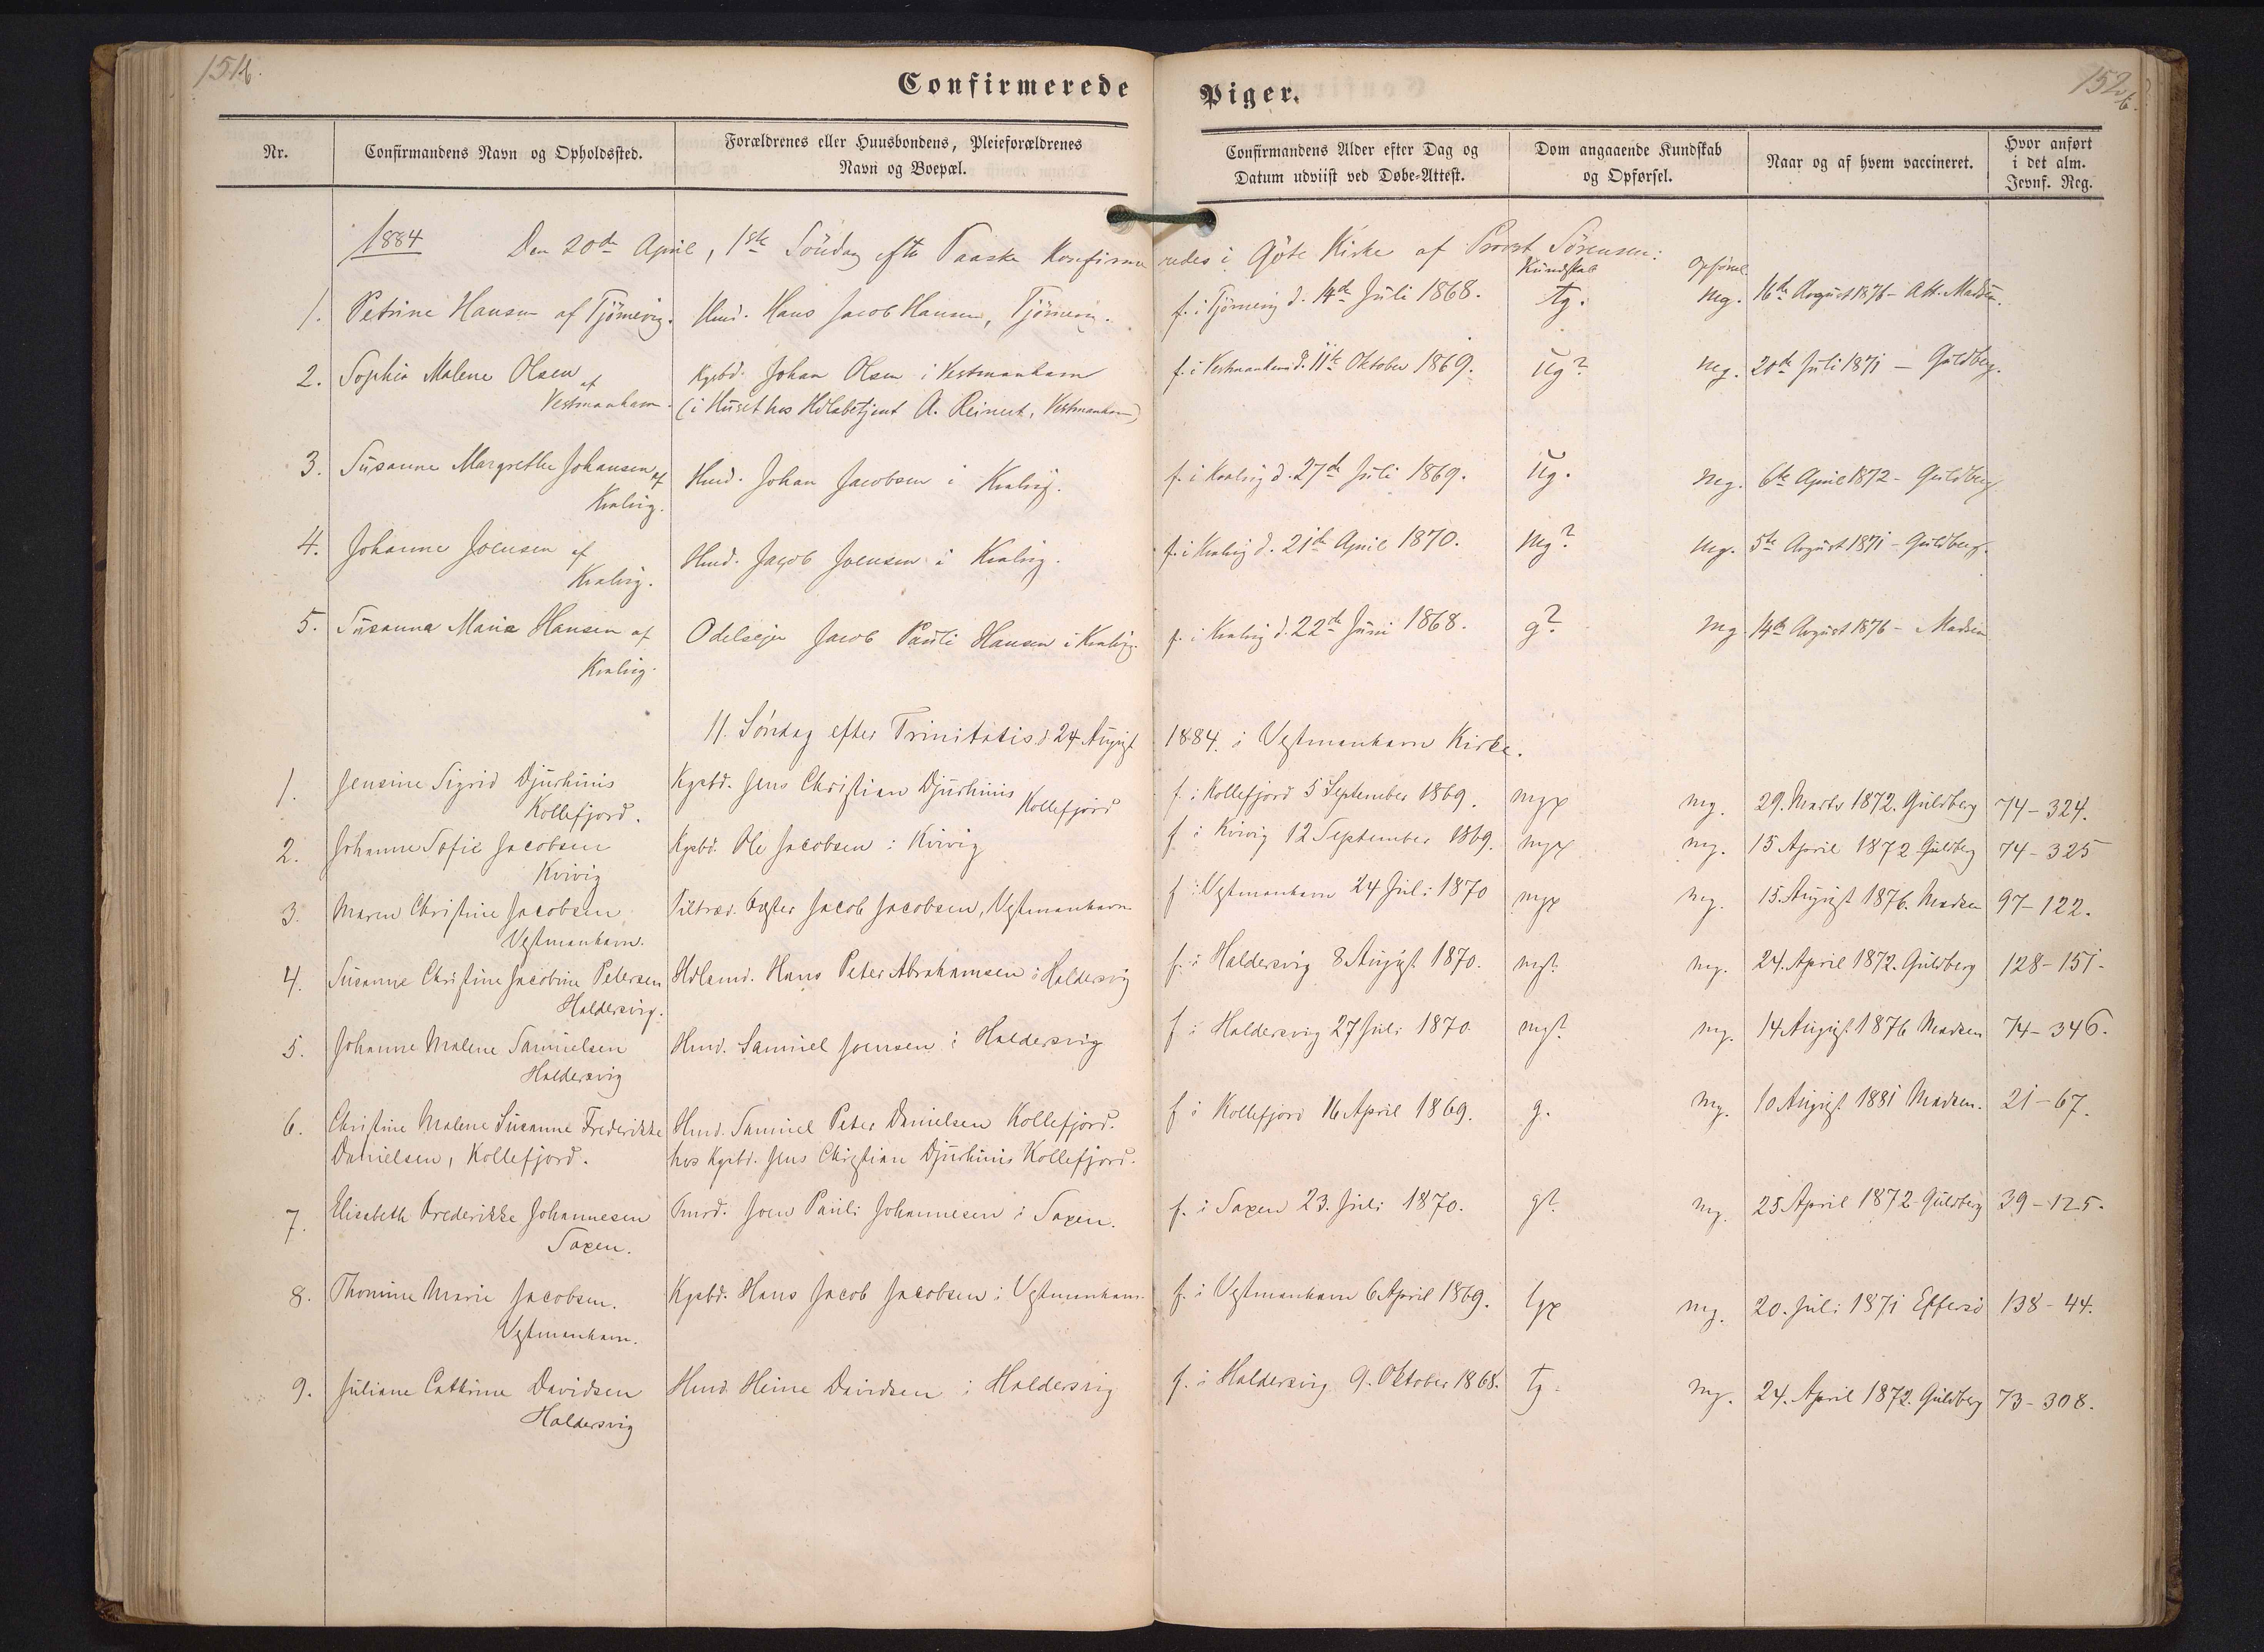 151b.
152b.
Confirmerede Piger.
Nr.
Confirmandens Navn og Opholdssted.
Forældrenes eller Huusbondens, Pleieforældrenes
Navn og Boepæl.
Confirmandens Alder efter Dag og
Datum udviist ved Døbe-Attest.
Dom angaaende Kundskab
og Opførsel.
Naar og af hvem vaccineret.
Hvor anført
i det alm.
Jevnf. Reg.
1884 Den 20de April, 1ste Söndag efter Paaske Konfirmeredes i Göte Kirke af Provst Sørensen:
Kundskab Opförsel
1. Petrine Hansen af Tjörnevig. Hmd. Hans Jacob Hansen, Tjörnevig. f. i Tjörnevig d. 14de Juli 1868. Tg. Mg. 16de August 1876 - Att. Madsen.
2. Sophia Malene Olsen af Kgsbd. Johan Olsen i Vestmanhavn f. i Vestmanhavn d. 11te Oktober 1869. Ug? Mg. 20de Juli 1871 - Guldberg.
Vestmanhavn. (i Huset hos Hdlsbetjent A. Reinert, Vestmanhavn)
3. Susanne Margrethe Johansen af Hmd. Johan Jacobsen i Kvalvig. f. i Kvalvig d. 27de Juli 1869. Ug. Mg. 6te April 1872 - Guldberg
Kvalvig.
4. Johanne Joensen af Hmd. Jacob Joensen i Kvalvig. f. i Kvalvig d. 21de April 1870. Mg? Mg. 5te August 1871 - Guldberg.
Kvalvig.
5. Susanna Maria Hansen af Odelsejer Jacob Pauli Hansen i Kvalvig. f. i Kvalvig d. 22de Juni 1868. g? Mg. 14de August 1876 - Madsen
Kvalvig.
11. Søndag efter Trinitatis d 24. August 1884. i Vestmanhavn Kirke.
1. Jensine Sigrid Djurhuus Kgsbd. Jens Christian Djurhuus f. i Kollefjord 5 September 1869. mgx mg. 29. Marts 1872. Guldberg 74-324.
Kollefjord. Kollefjord
2. Johanne Sofie Jacobsen Kgsbd. Ole Jacobsen i Kvivig f. i Kvivig 12 September 1869. mgx mg. 15 April 1872 Guldberg 74-325
Kvivig
3. Maren Christine Jacobsen Jacob Jacobsen, Vestmanhavn f. i Vestmanhavn 24 Juli 1870 mgx mg. 15. August 1876. Madsen 97-122.
Vestmanhavn.
4. Susanne Christine Jacobine Petersen Hdlsmd. Hans Peter Abrahamsen i Haldersvig f. i Haldersvig 8 August 1870. mg? mg. 24. April 1872. Guldberg 128-151-
Haldersvig.
5. Johanne Malene Samuelsen Hmd. Samuel Joensen i Haldersvig f. i Haldersvig 27 Juli 1870 mg? mg. 14 August 1876 Madsen 74-346.
Haldersvig
6. Christine Malene Susanne Frederikke Hmd. Samuel Peter Danielsen Kollefjord. f i Kollefjord 16 April 1869. g. mg. 10 August 1881 Madsen. 21-67.
Danielsen, Kollefjord. hos Kgsbd. Jens Christian Djurhuus Kollefjord.
7. Elisabeth Frederikke Johannesen Joen Pauli Johannesen i Saxen. f. i Saxen 23. Juli 1870. g? mg. 25 April 1872 Guldberg 39-125.
Saxen.
8. Thomine Marie Jacobsen. Kgsbd. Hans Jacob Jacobsen i Vestmanhavn. f. i Vestmanhavn 6 April 1869. tgx mg. 20. Juli 1871 Effersö 138-44.
Vestmanhavn.
9. Juliane Cathrine Davidsen Hmd. Heine Davidsen i Haldersvig f. i Haldersvig 9. Oktober 1868. Tg. mg. 24. April 1872. Guldberg 73-308.
Haldersvig